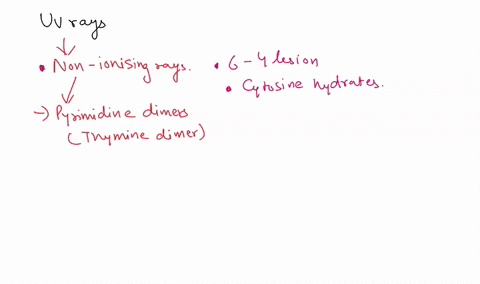 UV rays
• Non-ionising rays.
→ Pyrimidine dimers
(Thymine dimer)
• 6-4 lesion
• Cytosine hydrates.